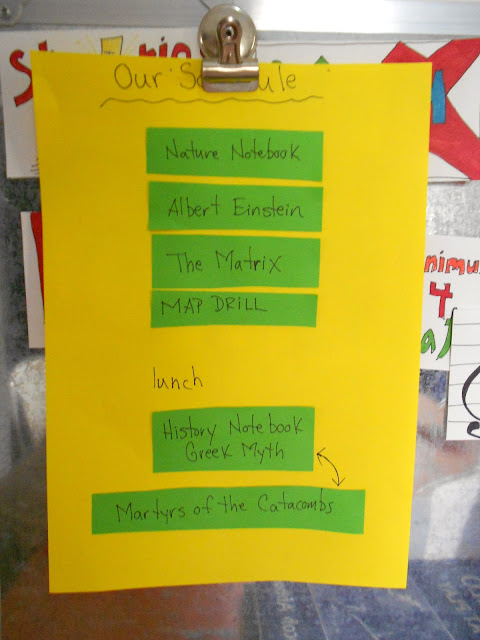 Our Schedule
Nature Notebook
Albert Einstein
The Matrix
MAP DRILL
lunch
History Notebook
Greek Myth
Martyrs of the Catacombs
4